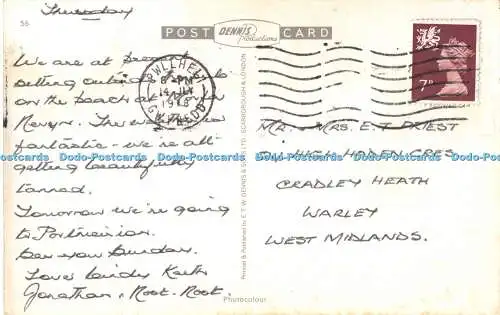 Thursday
56
POST CARD
DENNIS
Productions
We are at present
sitting outside
on the beach at
Nevyn. The weather
fantastic - we're all
getting beautifully
tanned.
Tomorrow we're going
to Portmeirion.
See you Sunday.
Love Linda Keith
Jonathan, Root-Root.
PWLLHELI
8 PM
14 JLY
GWYNEDD
7P
MR. & MRS. E.T. PRIEST
HIGH HADEN CRES.
CRADLEY HEATH
WARLEY
WEST MIDLANDS.
Printed & Published by E.T.W. DENNIS & SONS LTD. SCARBOROUGH & LONDON
Photocolour
Dodo-Postcards Dodo-Postcards Dodo-Postcards Dodo-Postcards Dodo-Postcards